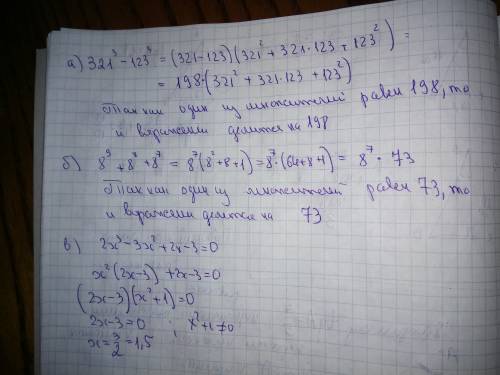 а) 321³ - 123³ = (321-123)(321² + 321·123 + 123²) =
= 198·(321² + 321·123 + 123²)
Так как один из множителей равен 198, то
и выражение делится на 198
б) 8⁹ + 8⁸ + 8⁷ = 8⁷(8² + 8 + 1) = 8⁷·(64+8+1) = 8⁷ · 73
Так как один из множителей равен 73, то
и выражение делится на 73
в) 2x³ - 3x² + 2x - 3 = 0
x²(2x-3) + 2x-3 = 0
(2x-3)(x²+1) = 0
2x-3 = 0 ; x²+1 ≠ 0
x = 3/2 = 1,5